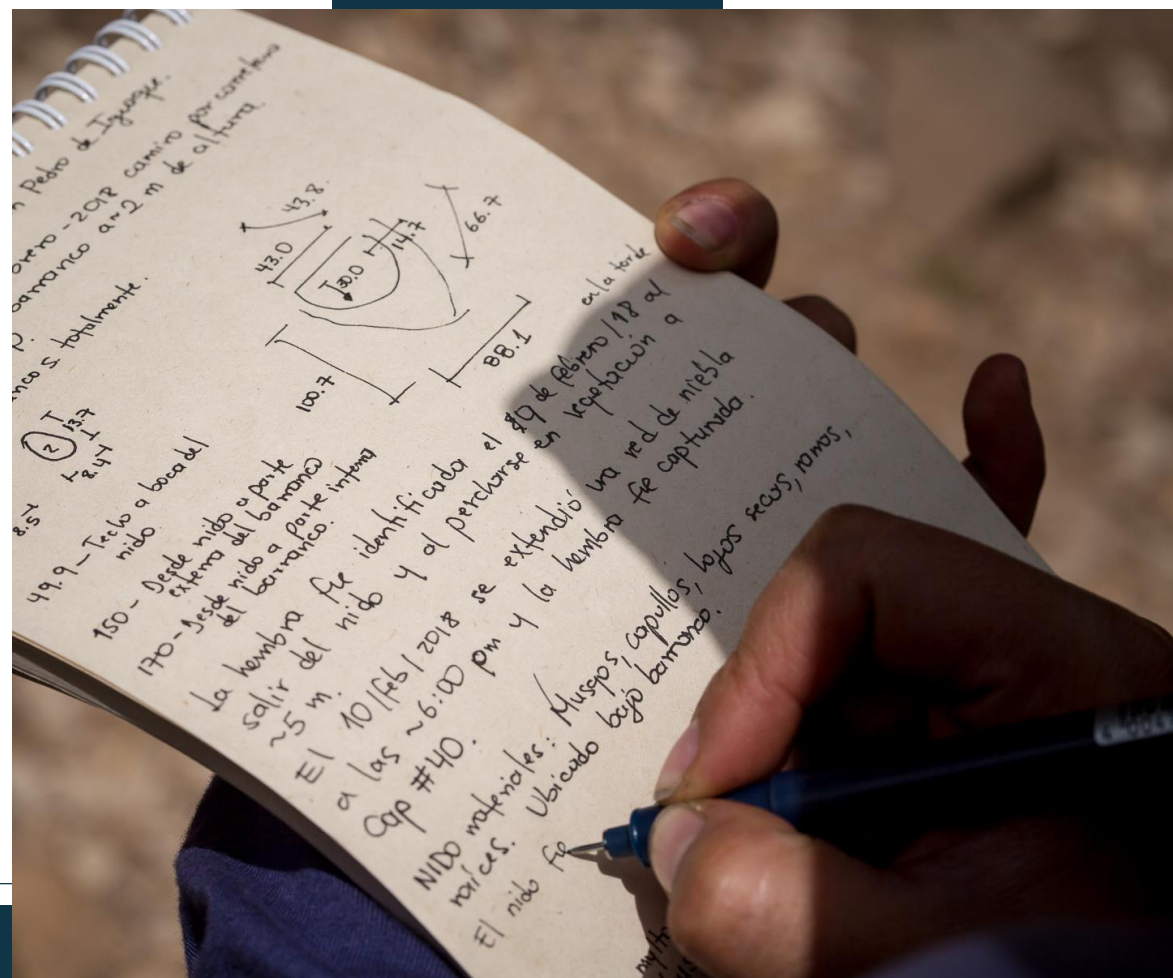 n Pedro de Iguaque.
brero - 2018 camino por carretera
barranco a ~ 2 m de altura.
p.
ncos totalmente.
43.8
43.0
30.0
14.7
66.7
100.7
88.1
2
13.7
8.47
8.5
49.9 - Techo a boca del
nido.
150 - Desde nido a parte
externa del barranco
170 - Desde nido a parte interna
del barranco.
en la tarde
La hembra fue identificada el 9 de febrero/18 al
salir del nido y al percharse en vegetación a
~5 m.
El 10/feb/2018 se extendió una red de niebla
a las ~6:00 pm y la hembra fue capturada.
Cap #40.
NIDO materiales: Musgos, capullos, hojas secas, ramas,
raíces. Ubicado bajo barranco.
El nido fue